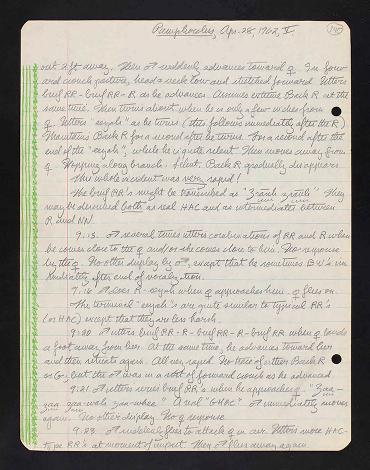 Ramphocelus, Apr. 28, 1962, V
out 2 ft away. Then ♂ suddenly advances toward ♀. In forw-
ard crouch posture, head & neck low and stretched forward. Utters
brief RR - brief RR - R as he advances. Assumes extreme Back R at the
same time. Then turns about, when he is only a few inches from
♀. Utters "eeyah" as he turns (this follows immediately after the R)
Maintains Back R for a second after he turns. For a second after the
end of the "eeyah", while he is quite silent. Then moves away from
♀. Hopping along branch. Silent. Back R gradually disappears.
The whole incident was very rapid!
The brief RR's might be transcribed as
They
may be described both as real HAC and as intermediate between
R and NN.
9:13. ♂ several times utters combinations of RR and R when
he comes close to the ♀ and/or she comes close to him. No response
by the ♀. No other display by ♂, except that he sometimes BW's im-
mediately after end of vocalization.
9:16 ♂ does R-eeyah when ♀ approaches him. ♀ flies on.
The terminal "eeyah"s are quite similar to typical RR's
(or HAC) except that they are less harsh.
9:20 ♂ utters brief RR-R-brief RR-R-brief RR when ♀ lands
a foot away from him. At the same time, he advances toward her
and then retreats again. All very rapid. No trace of either Back R
or G, but the ♂ was in a sort of forward crouch as he advanced.
9:21 ♂ utters series brief RR's when he approaches ♀.
A real "GHAC" ♂ immediately moves
again. No other display. No ♀ response.
9:23 ♂ suddenly flies to attack ♀ in air. Utters more HAC-
type RR's at moment of impact. Then ♂ flies away again.